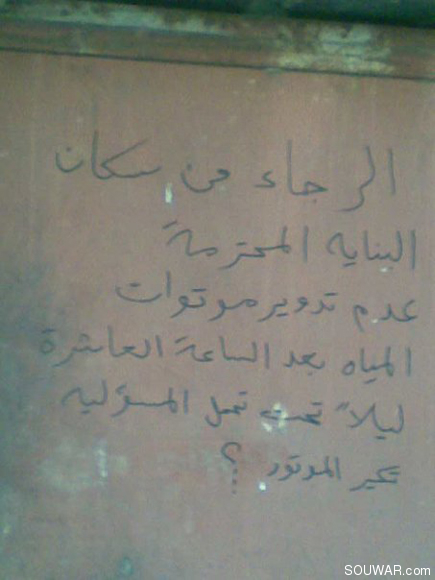 الرجاء من سكان
البنايه المحترمة
عدم تدوير موتورات
المياه بعد الساعة العاشرة
ليلاً تحت تحمل المسؤليه
تكير الموتور ؟
SOUWAR.com